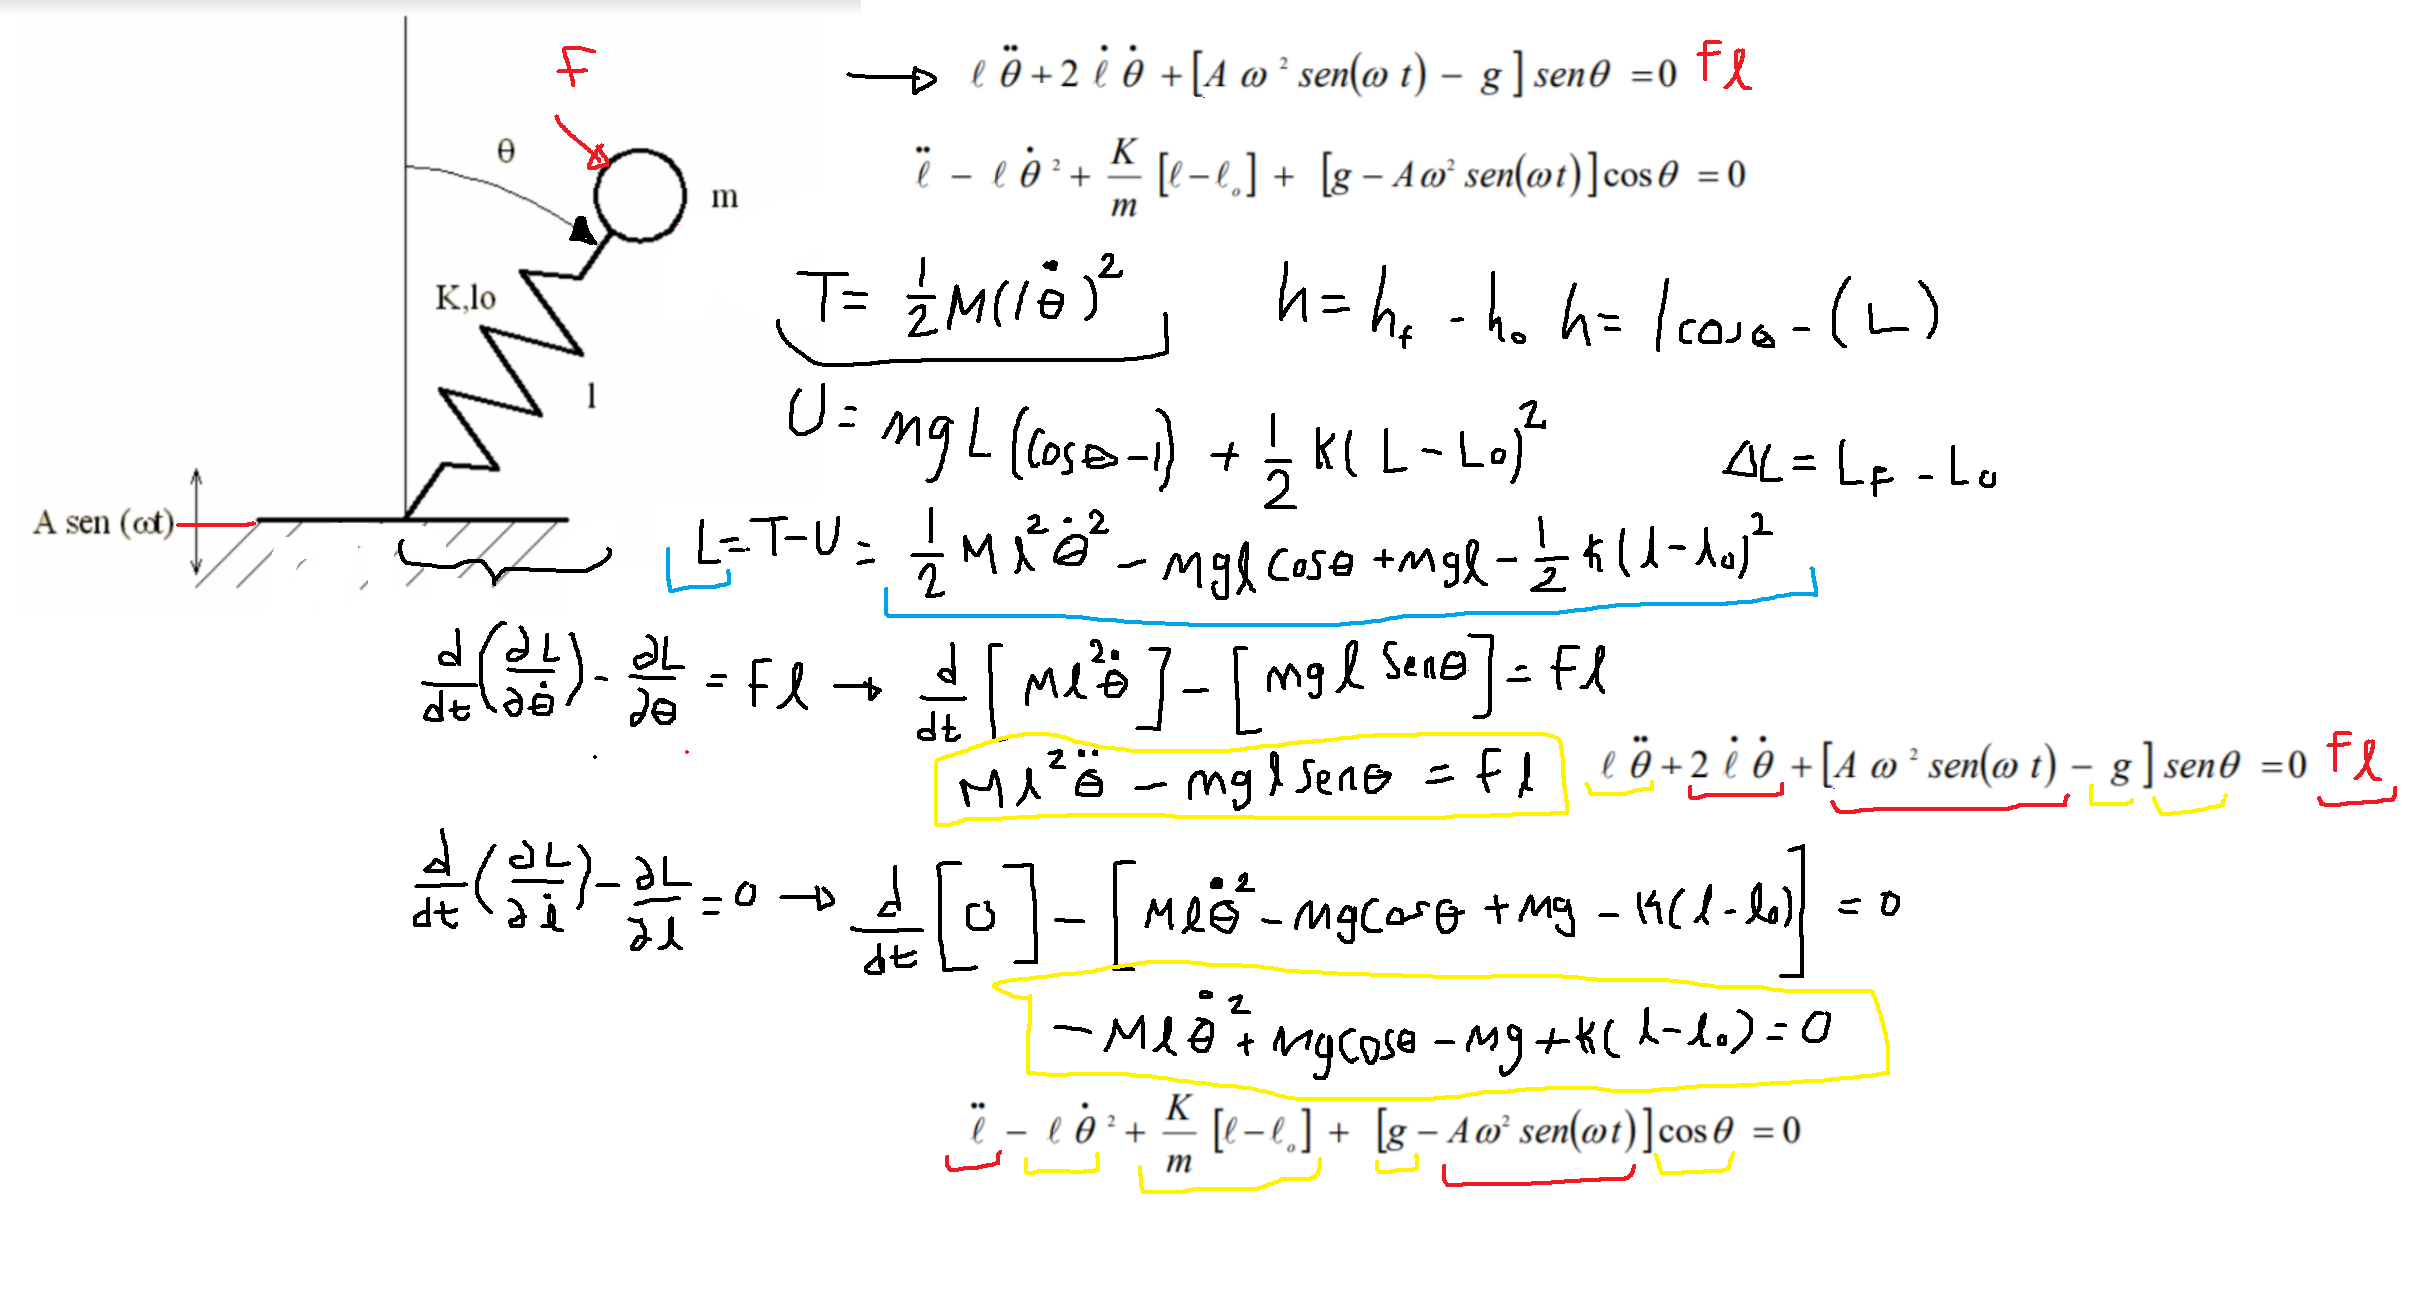 F
→ ℓ θ̈ + 2 ℓ̇ θ̇ + [A ω² sen(ω t) − g ] senθ = 0 Fℓ
θ
ℓ̈ − ℓ θ̇² + K/m [ℓ−ℓₒ] + [g − Aω² sen(ωt)] cosθ = 0
m
K,lo
T = 1/2 M(lθ̇)² h = h_f - h_o h = l cosθ - (L)
l
U = mgL(cosθ-1) + 1/2 K(L-Lo)² ΔL = L_F - Lo
A sen (ωt)
L = T-U = 1/2 M l²θ̇² - mgl cosθ + mgl - 1/2 k(l-lo)²
d/dt(∂L/∂θ̇) - ∂L/∂θ = Fl → d/dt[Ml²θ̇] - [mgl senθ] = Fl
Ml²θ̈ - mgl senθ = Fl
ℓ θ̈ + 2 ℓ̇ θ̇ + [A ω² sen(ω t) − g ] senθ = 0 Fℓ
d/dt(∂L/∂l̇) - ∂L/∂l = 0 → d/dt[0] - [Mlθ̇² - mgcosθ + mg - K(l-lo)] = 0
-Mlθ̇² + mgcosθ - mg + k(l-lo) = 0
ℓ̈ − ℓ θ̇² + K/m [ℓ−ℓₒ] + [g − Aω² sen(ωt)] cosθ = 0